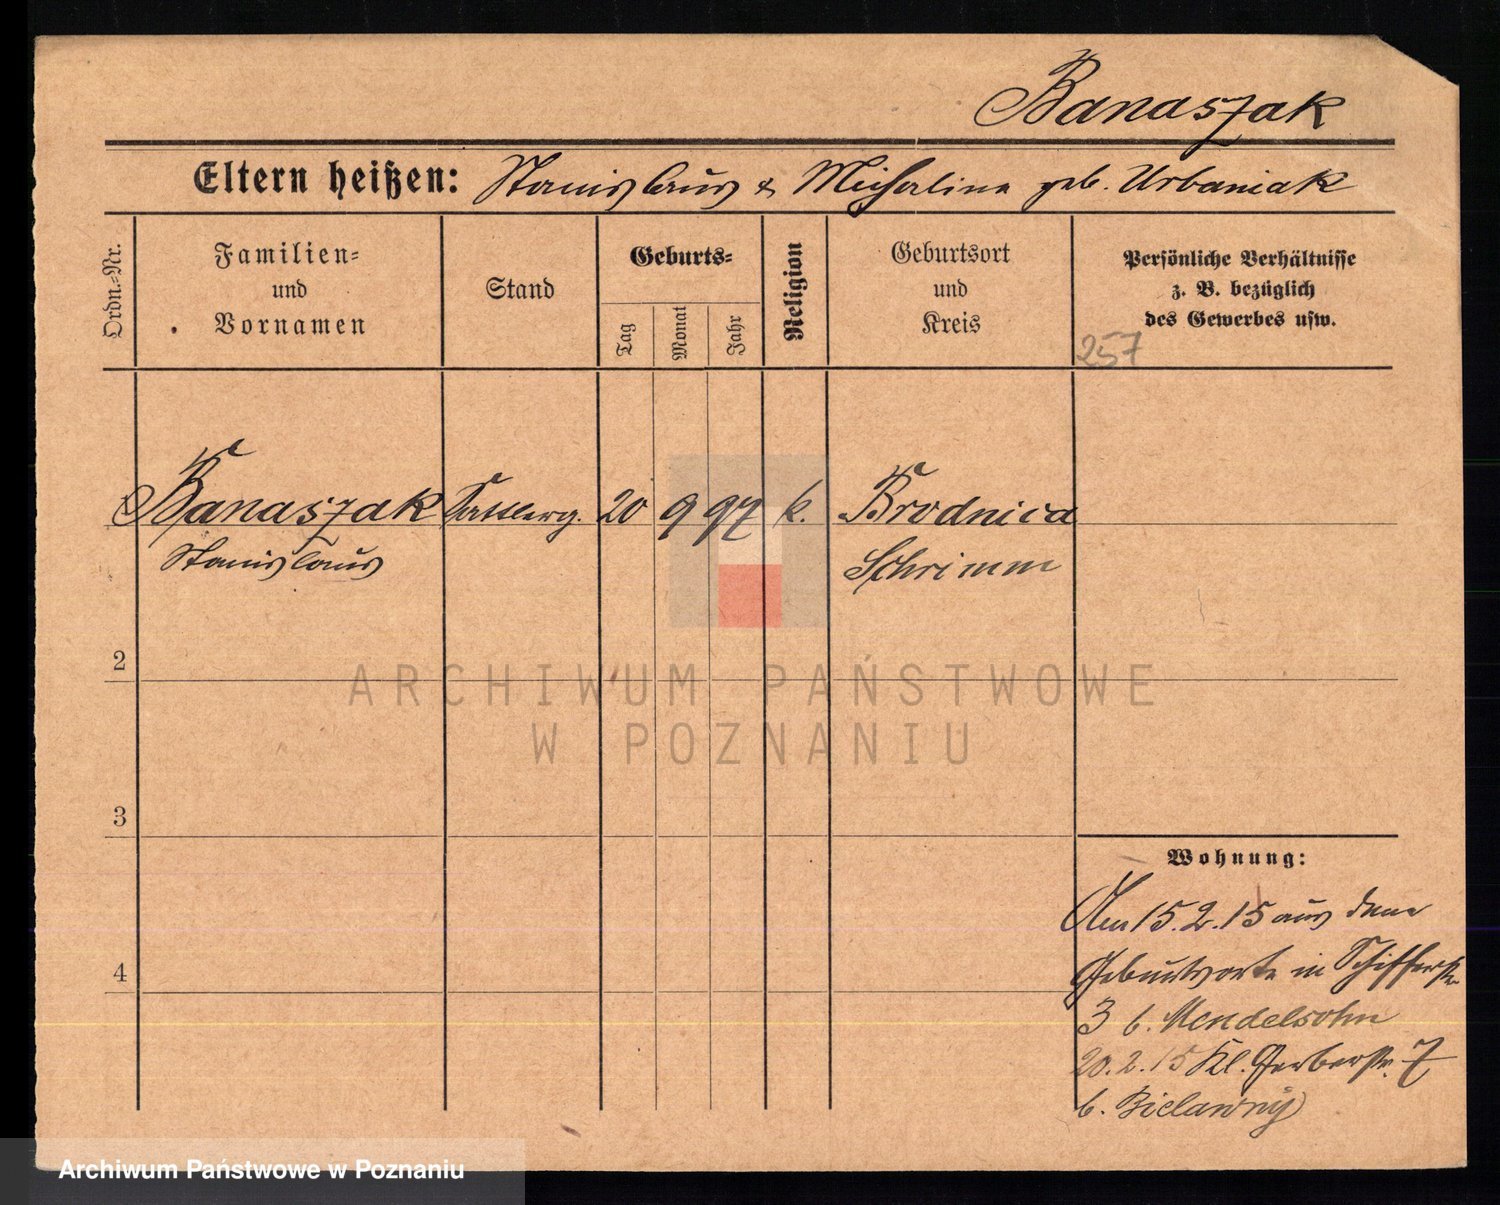 Banaszak
Eltern heißen: Stanislaus & Michalina geb. Urbaniak
Ordn.-Nr.
Familien-
und
Vornamen
Stand
Geburts-
Tag
Monat
Jahr
Religion
Geburtsort
und
Kreis
Persönliche Verhältnisse
z. B. bezüglich
des Gewerbes usw.
257
1 Banaszak 20 9 97 k. Brodnica
Stanislaus Schrimm
2
ARCHIWUM PAŃSTWOWE
W POZNANIU
3
Wohnung:
Am 15.2.15 aus dem
Geburtsorte in Schifferstr
4
3 b. Mendelsohn
20.2.15 Kl. Gerberstr. 7
b. Bielawny
Archiwum Państwowe w Poznaniu